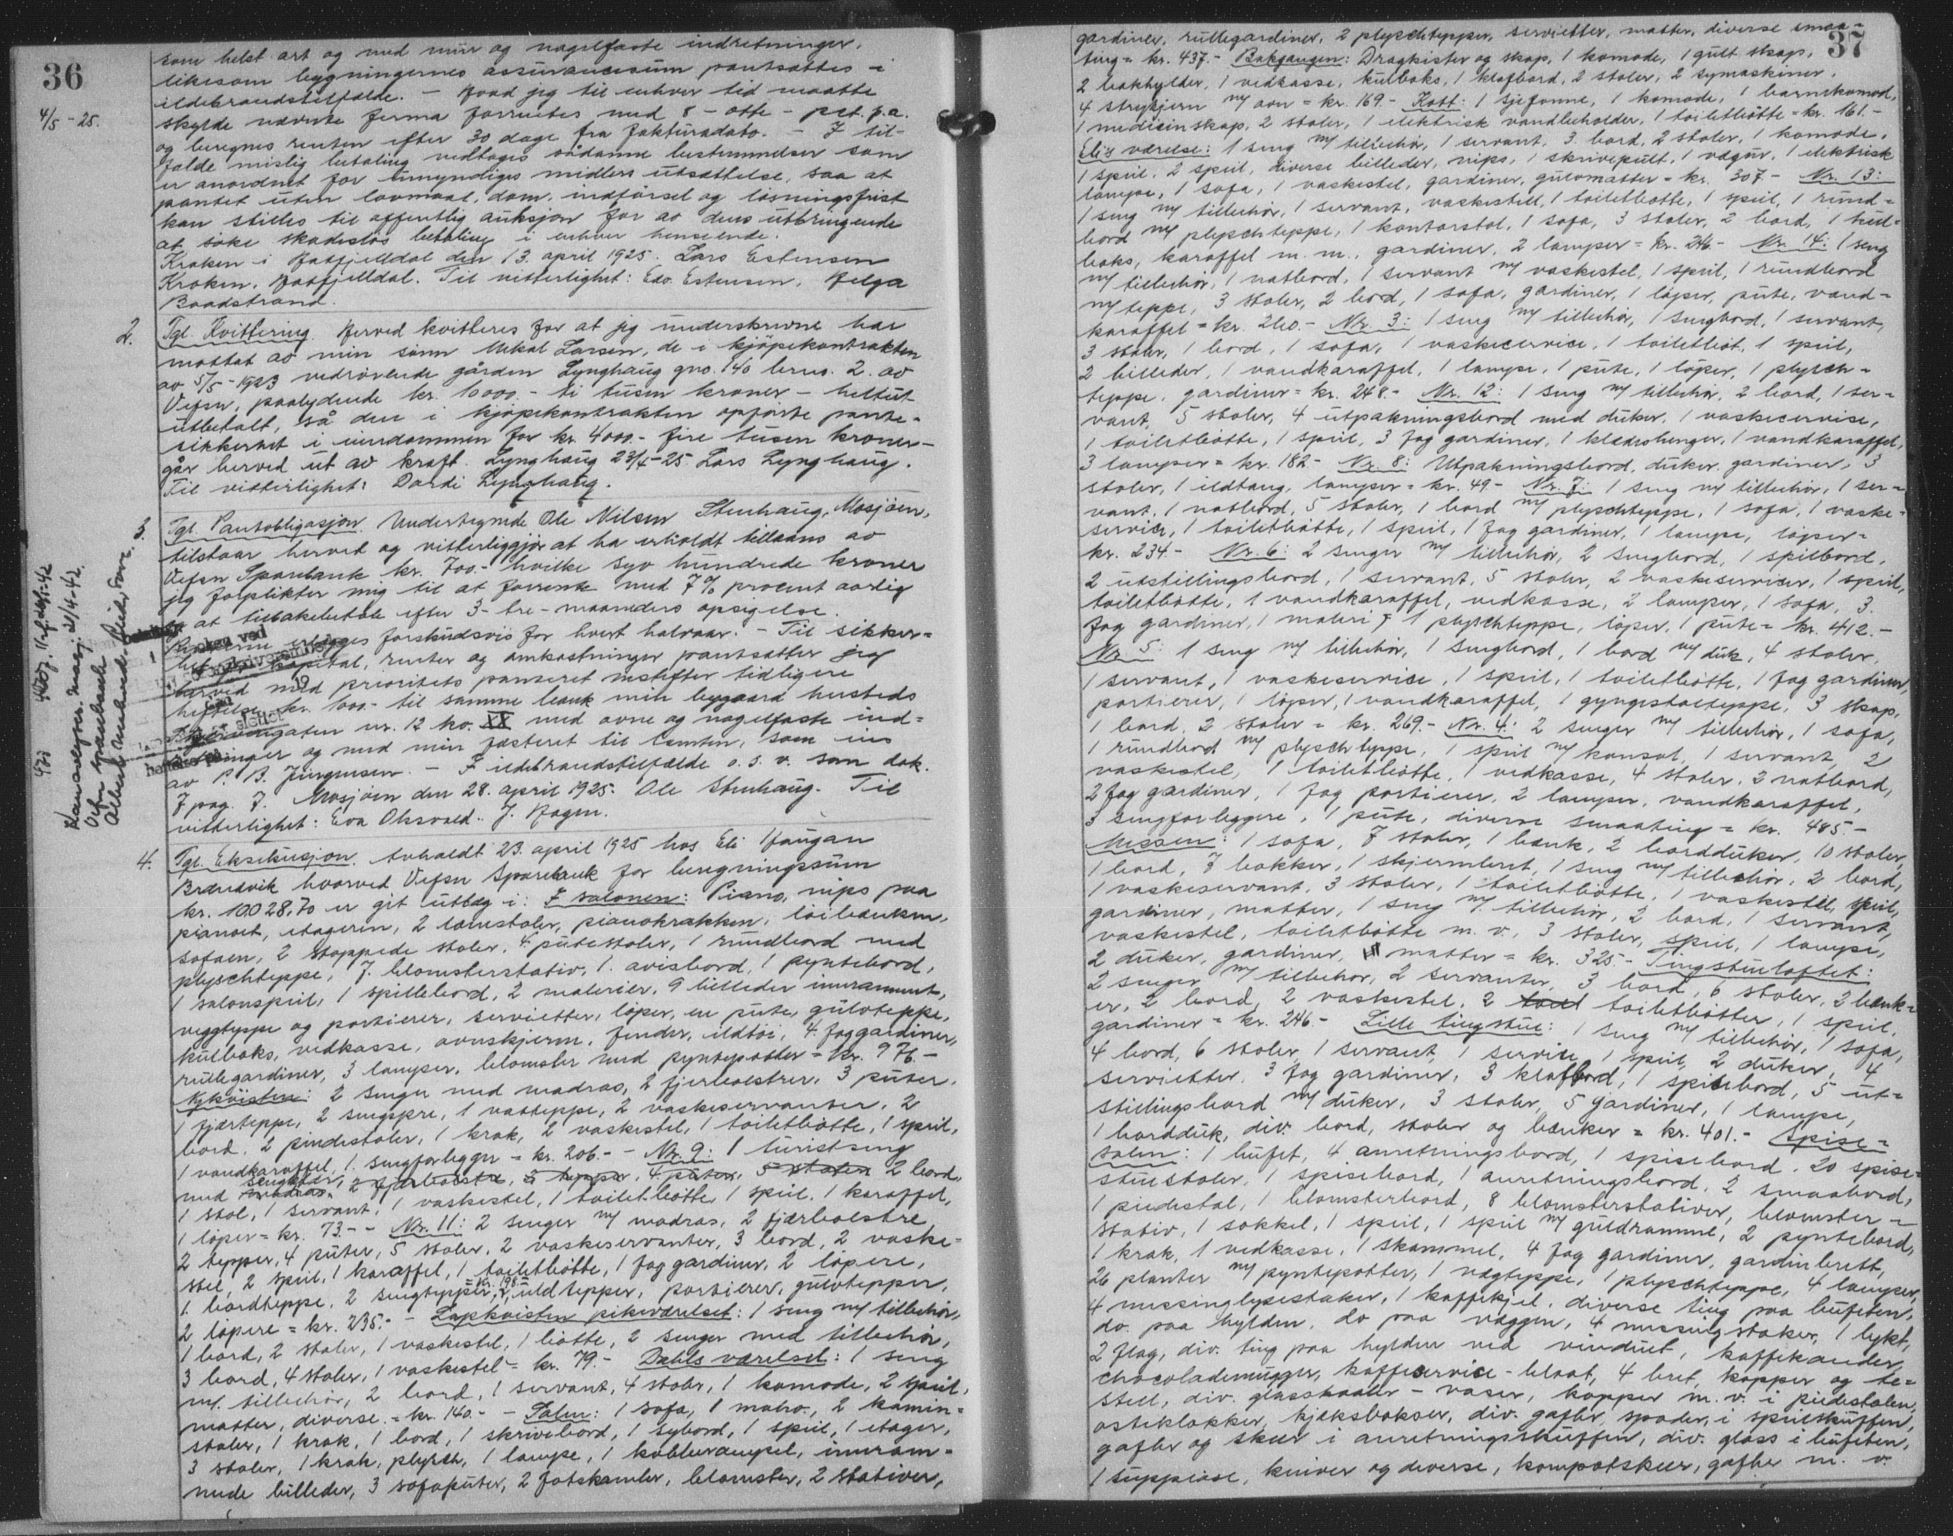 36
4/5 - 25.
som helst art og med mur og nagelfaste indretninger,
likesom bygningernes assurancesum pantsættes i
ildebrandstilfælde. - Hvad jeg til enhver tid maatte
skylde nævnte firma forrentes med 8 - otte - pct. p.a.
og beregnes renten efter 30 dage fra fakturadato. - I til-
fælde mislig betaling vedtages sådanne bestemmelser som
er anordnet for umyndiges midlers utsættelse, saa at
pantet uten lovmaal, dom, indførsel og løsningsfrist
kan stilles til offentlig auksjon for av dens utbringende
at søke skadesløs betaling i enhver henseende.
Kroken i Hatfjelldal den 13. april 1925. Lars Estensen
Kroken, Hatfjelldal. Til vitterlighet: Edv. Estensen. Helga
Baadstrand.
2. Tgl. Kvittering. Herved kvitteres for at jeg underskrevne har
mottat av min sønn Mikal Larsen, de i kjøpekontrakten
av 5/5-1923 vedrørende gården Lynghaug gno. 140 brno. 2. av
Vefsn, paalydende kr. 10000.- ti tusen kroner - heltut
utbetalt, så den i kjøpekontrakten opførte pante-
sikkerhet i eiendommen for kr. 4000.- fire tusen kroner -
går herved ut av kraft. Lynghaug 23/4-25 Lars Lynghaug.
Til vitterlighet: Dardi Lynghaug.
3. Tgl. Pantobligasjon. Undertegnede Ole Nilsen Stenhaug, Mosjøen,
tilstaar herved og vitterliggjør at ha erholdt tillaans av
Vefsn Sparebank kr. 700.- hvilke syv hundrede kroner
jeg forplikter mig til at forrente med 7% procent aarlig
og at tilbakebetale efter 3 - tre - maaneders opsigelse.
Renterne erlægges forskudsvis for hvert halvaar. - Til sikker-
het for kapital, renter og omkostninger pantsætter jeg
herved med prioritets panteret næstefter tidligere
heftelse kr. 1000.- til samme bank min bygaard husteds
nr. 12 ko. XX med ovne og nagelfaste ind-
retninger og med min fæsteret til tomten, som eies
av P. B. Jürgensen. - I ildebrandstilfælde o. s. v. som dok.
7 pag. 7. Mosjøen den 28. april 1925. Ole Stenhaug. Til
vitterlighet: Eva Olsvold. J. Hagen.
4. Tgl. Eksekusjon. Avholdt 23. april 1925 hos Eli Haugan
Brændvik hvorved Vefsn Sparebank for beregningssum
kr. 10028,70 er git utlæg i: I salonen: Piano, nips paa
pianoet, etagerin, 2 lænestoler, pianokrakken, loibænken,
sofaen, 2 stoppede stoler, 4 putestoler, 1 rundbord med
plyschteppe, 7. blomsterstativ, 1. avisbord, 1 pyntebord,
1 salonspeil, 1 spillebord, 2 malerier, 9 billeder inrammet,
veggteppe og portierer, servietter, løper, en pute, gulvteppe,
kulboks, vedkasse, ovnskjerm, fender, ildtøi, 4 fag gardiner,
rullegardiner, 3 lamper, blomster med pyntepotter = kr. 976 -
Nykvisten: 2 senger med madras, 2 fjærbolstrer, 3 puter.
1 fjærteppe, 2 sengspre, 1 vatteppe, 2 vaskeservanter, 2
bord, 2 pindestoler, 1 krak, 2 vaskestel, 1 toiletbøtte, 1 speil,
1 vandkaraffel, 1 sengforlegger = kr. 206.- - Nr. 9: 1 turistseng
med sengklær, 2 fjærbolstre, 2 tepper, 4 puter, 5 stoler 2 bord,
1 stol, 1 servant, 1 vaskestel, 1 toiletbøtte, 1 speil, 1 karaffel,
1 løper = kr. 73.- - Nr. 11: 2 senger m/ madras, 2 fjærbolstre
2 tepper, 4 puter, 5 stoler, 2 vaskeservanter, 3 bord, 2 vaske-
stel, 2 speil, 1 karaffel, 1 toiletbøtte, 1 fag gardiner, 2 løpere,
1 bordteppe, 2 sengtepper = kr. 198.- 2 uldtepper, portierer, gulvtepper,
2 løpere = kr. 235.- - Lapkvisten pikeværelset: 1 seng m/ tilbehør,
1 bord, 2 stoler, 1 vaskestel, 1 bøtte, 2 senger med tilbehør,
3 bord, 4 stoler, 1 vaskestel = kr. 79.- Dahls værelset: 1 seng
m/ tilbehør, 2 bord, 1 servant, 4 stoler, 1 komode, 2 speil,
matter, diverse = kr. 140.- - Salen: 1 sofa, 1 matro., 2 kamin-
stoler, 1 krak, 1 bord, 1 skrivebord, 1 sybord, 1 speil, 1 etager,
3 stoler, 1 krak, plysch, 1 lampe, 1 kobberampel, inram-
mede billeder, 3 sofaputer, 2 fotskamler, blomster, 2 stativer,
Kansselgven. Mosj. 21/4-42.
Vefsn sparebank
37
gardiner, rullegardiner, 2 plyschtepper, servietter, matter, diverse smaa-
ting = kr. 437.- Bakgangen: Dragkister og skap, 1 komode, 1 gult skap,
2 bokhylder, 1 vedkasse, kulboks, 1 klafbord, 2 stoler, 2 symaskiner,
4 strykjern m/ ovn = kr. 169.- Kott: 1 sjefonne, 1 komode, 1 barnekomod,
1 medicinskap, 2 stoler, 1 elektrisk vandbeholder, 1 toiletbøtte = kr. 161.-
Elis værelse: 1 seng m/ tilbehør, 1 servant, 3 bord, 2 stoler, 1 komode,
1 speil, 2 speil, diverse billeder, nips, 1 skrivepult, 1 vægur, 1 elektrisk
lampe, 1 sofa, 1 vaskestel, gardiner, gulvmatter = kr. 307.- Nr. 13:
1 seng m/ tilbehør, 1 servant, vaskestell, 1 toiletbøtte, 1 speil, 1 rund-
bord m/ plyschteppe, 1 kontorstol, 1 sofa, 3 stoler, 2 bord, 1 kul-
boks, karaffel m. m., gardiner, 2 lamper = kr. 246 - Nr. 14: 1 seng
m/ tilbehør, 1 natbord, 1 servant m/ vaskestel, 1 speil, 1 rundbord
m/ teppe, 3 stoler, 2 bord, 1 sofa, gardiner, 1 løper, pute, vand-
karaffel = kr. 260.- Nr. 3: 1 seng m/ tilbehør, 1 sengbord, 1 servant,
3 stoler, 1 bord, 1 sofa, 1 vaskecervice, 1 toiletbøt, 1 speil,
2 billeder, 1 vandkaraffel, 1 lampe, 1 pute, 1 løper, 1 plysch-
teppe, gardiner = kr. 248.- Nr. 12: 1 seng m/ tilbehør, 2 bord, 1 ser-
vant, 5 stoler, 4 utpakningsbord med duker, 1 vaskecervise,
1 toiletbøtte, 1 speil, 3 fag gardiner, 1 klædeshenger, 1 vandkaraffel,
3 lamper = kr. 182 - Nr. 8: Utpakningsbord, duker, gardiner, 3
stoler, 1 ildtang, lamper = kr. 49 - Nr. 7: 1 seng m/ tilbehør, 1 ser-
vant, 1 natbord, 5 stoler, 1 bord m/ plyschteppe, 1 sofa, 1 vaske-
service, 1 toiletbøtte, 1 speil, 1 fag gardiner, 1 lampe, løper =
kr. 234 - Nr. 6: 2 senger m/ tilbehør, 2 sengbord, 1 spilbord,
2 utstillingsbord, 1 servant, 5 stoler, 2 vaskeservicer, 1 speil,
toiletbøtte, 1 vandkaraffel, vedkasse, 2 lamper, 1 sofa, 3
fag gardiner, 1 maleri, 1 plyschteppe, løper, 1 pute = kr. 412.-
Nr. 5: 1 seng m/ tilbehør, 1 sengbord, 1 bord m/ duk, 4 stoler,
1 servant, 1 vaskeservice, 1 speil, 1 toiletbøtte, 1 fag gardiner,
portierer, 1 løper, 1 vandkaraffel, 1 gyngestolteppe, 3 skap,
1 bord, 2 stoler = kr. 269.- Nr. 4: 2 senger m/ tilbehør, 1 sofa,
1 rundbord m/ plyschteppe, 1 speil m/ konsol, 1 servant, 2
vaskestel, 1 toiletbøtte, 1 vedkasse, 4 stoler, 2 natbord,
2 fag gardiner, 1 fag portierer, 2 lamper, vandkaraffel,
3 sengforleggere, 1 pute, diverse smaating = kr. 485 -
Messen: 1 sofa, 7 stoler, 1 bænk, 2 bordduker, 10 stoler,
1 bord, 7 bakker, 1 skjermbret, 1 seng m/ tilbehør, 2 bord,
1 vaskeservant, 3 stoler, 1 toiletbøtte, 1 vaskestel, speil,
gardiner, matter, 1 seng m/ tilbehør, 2 bord, 1 servant,
vaskestel, toiletbøtte m. v., 3 stoler, speil, 1 lampe,
2 duker, gardiner, matter = kr. 325 - Tingstueloftet:
2 senger m/ tilbehør, 2 servanter, 3 bord, 6 stoler, 2 bænk-
er, 2 bord, 2 vaskestel, 2 toiletbøtter, 1 speil,
gardiner = kr. 246.- Lille tingstue: 1 seng m/ tilbehør, 1 sofa,
4 bord, 6 stoler, 1 servant, 1 service, 1 speil, 2 duker, 4
servietter, 3 fag gardiner, 3 klafbord, 1 spisebord, 5 ut-
stillingsbord m/ duker, 3 stoler, 5 gardiner, 1 lampe,
1 bordduk, div. bord, stoler og bænker = kr. 401.- Spise-
salen: 1 bufet, 4 anretningsbord, 1 spisebord, 20 spise-
stuestoler, 1 spisebord, 1 anretningsbord, 2 smaabord,
1 piedestal, 1 blomsterbord, 8 blomsterstativer, blomster-
stativ, 1 sokkel, 1 speil, 1 speil m/ guldramme, 2 pyntebord,
1 krak, 1 vedkasse, 1 skammel, 4 fag gardiner, gardinbrett,
26 planter m/ pyntepotter, 1 vægteppe, 1 plyschteppe, 4 lamper,
4 messinglysestaker, 1 kaffekjel, diverse ting paa bufeten,
do. paa hylden, do paa væggen, 4 messingstaker, 1 lykt,
2 flag, div. ting paa hylden ved vinduet, kaffekander,
chocolademugger, kaffeservice - blaat, 4 bret, kopper og te-
stell, div. glasskaaler - vaser, kopper m. v. i piedestalen,
osteklokker, kjæksbokser, div. gafler, spader, i speilskuffen,
gafler og skeer i anretningsskuffen, div. glass i bufeten,
1 suppeøse, kniver og diverse, kompotskeer, gafler m. v.